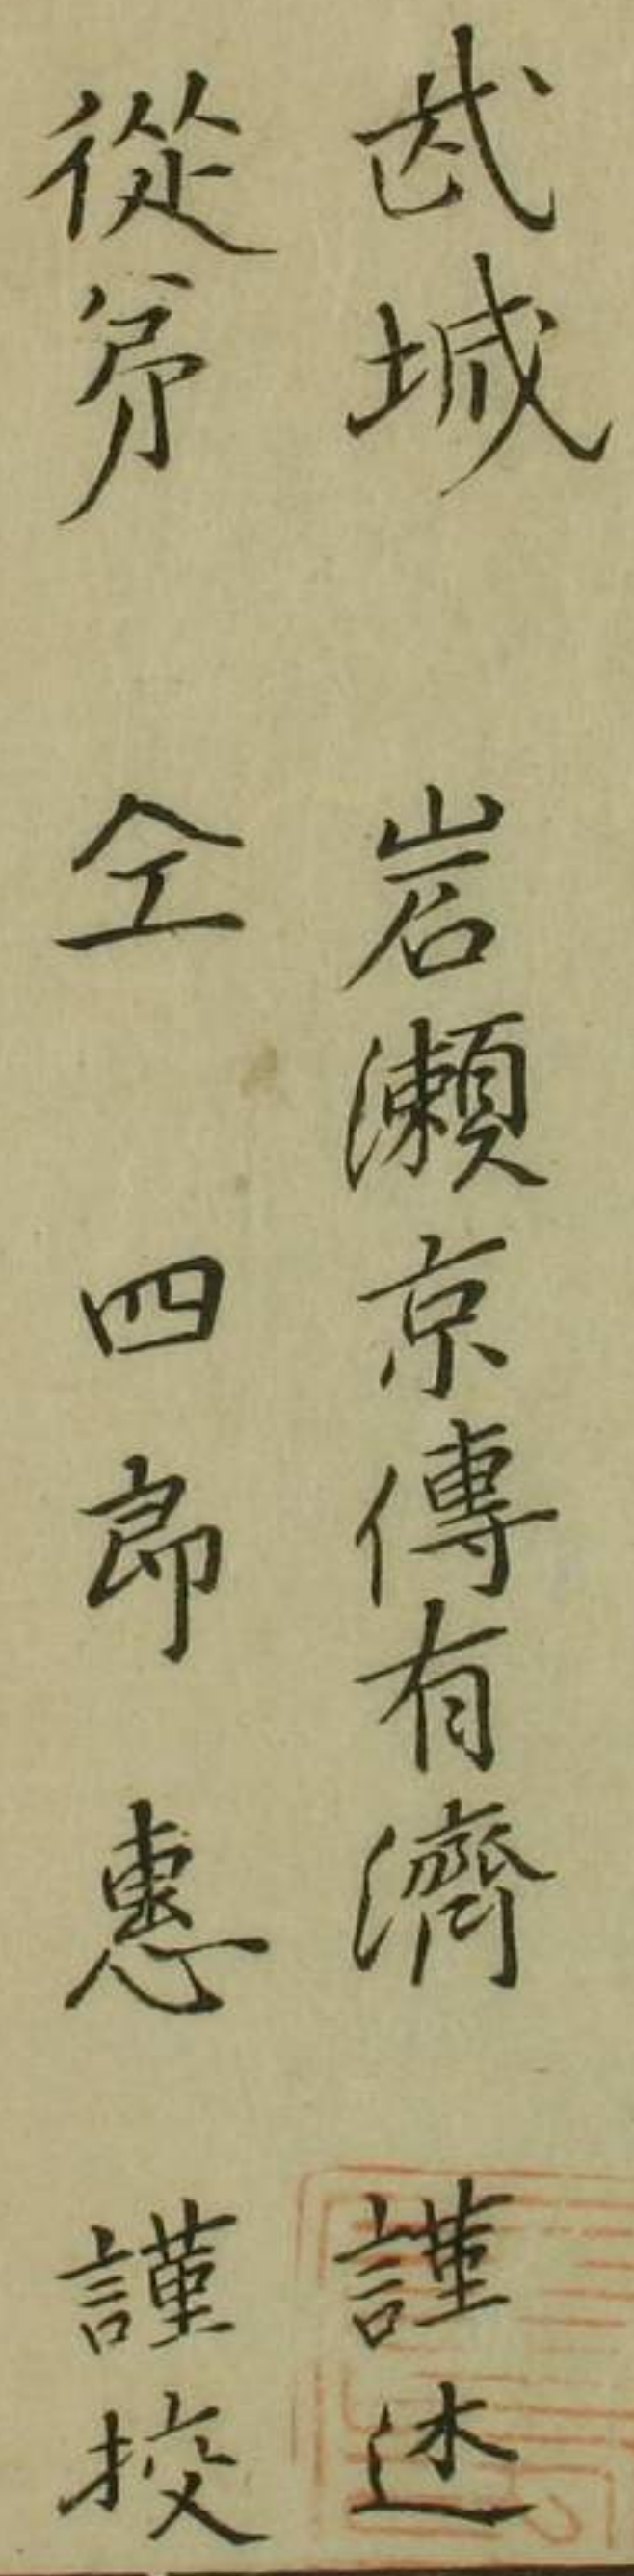 武城 岩瀬京傳有濟 謹述
從弟 仝 四郎 惠 謹挍